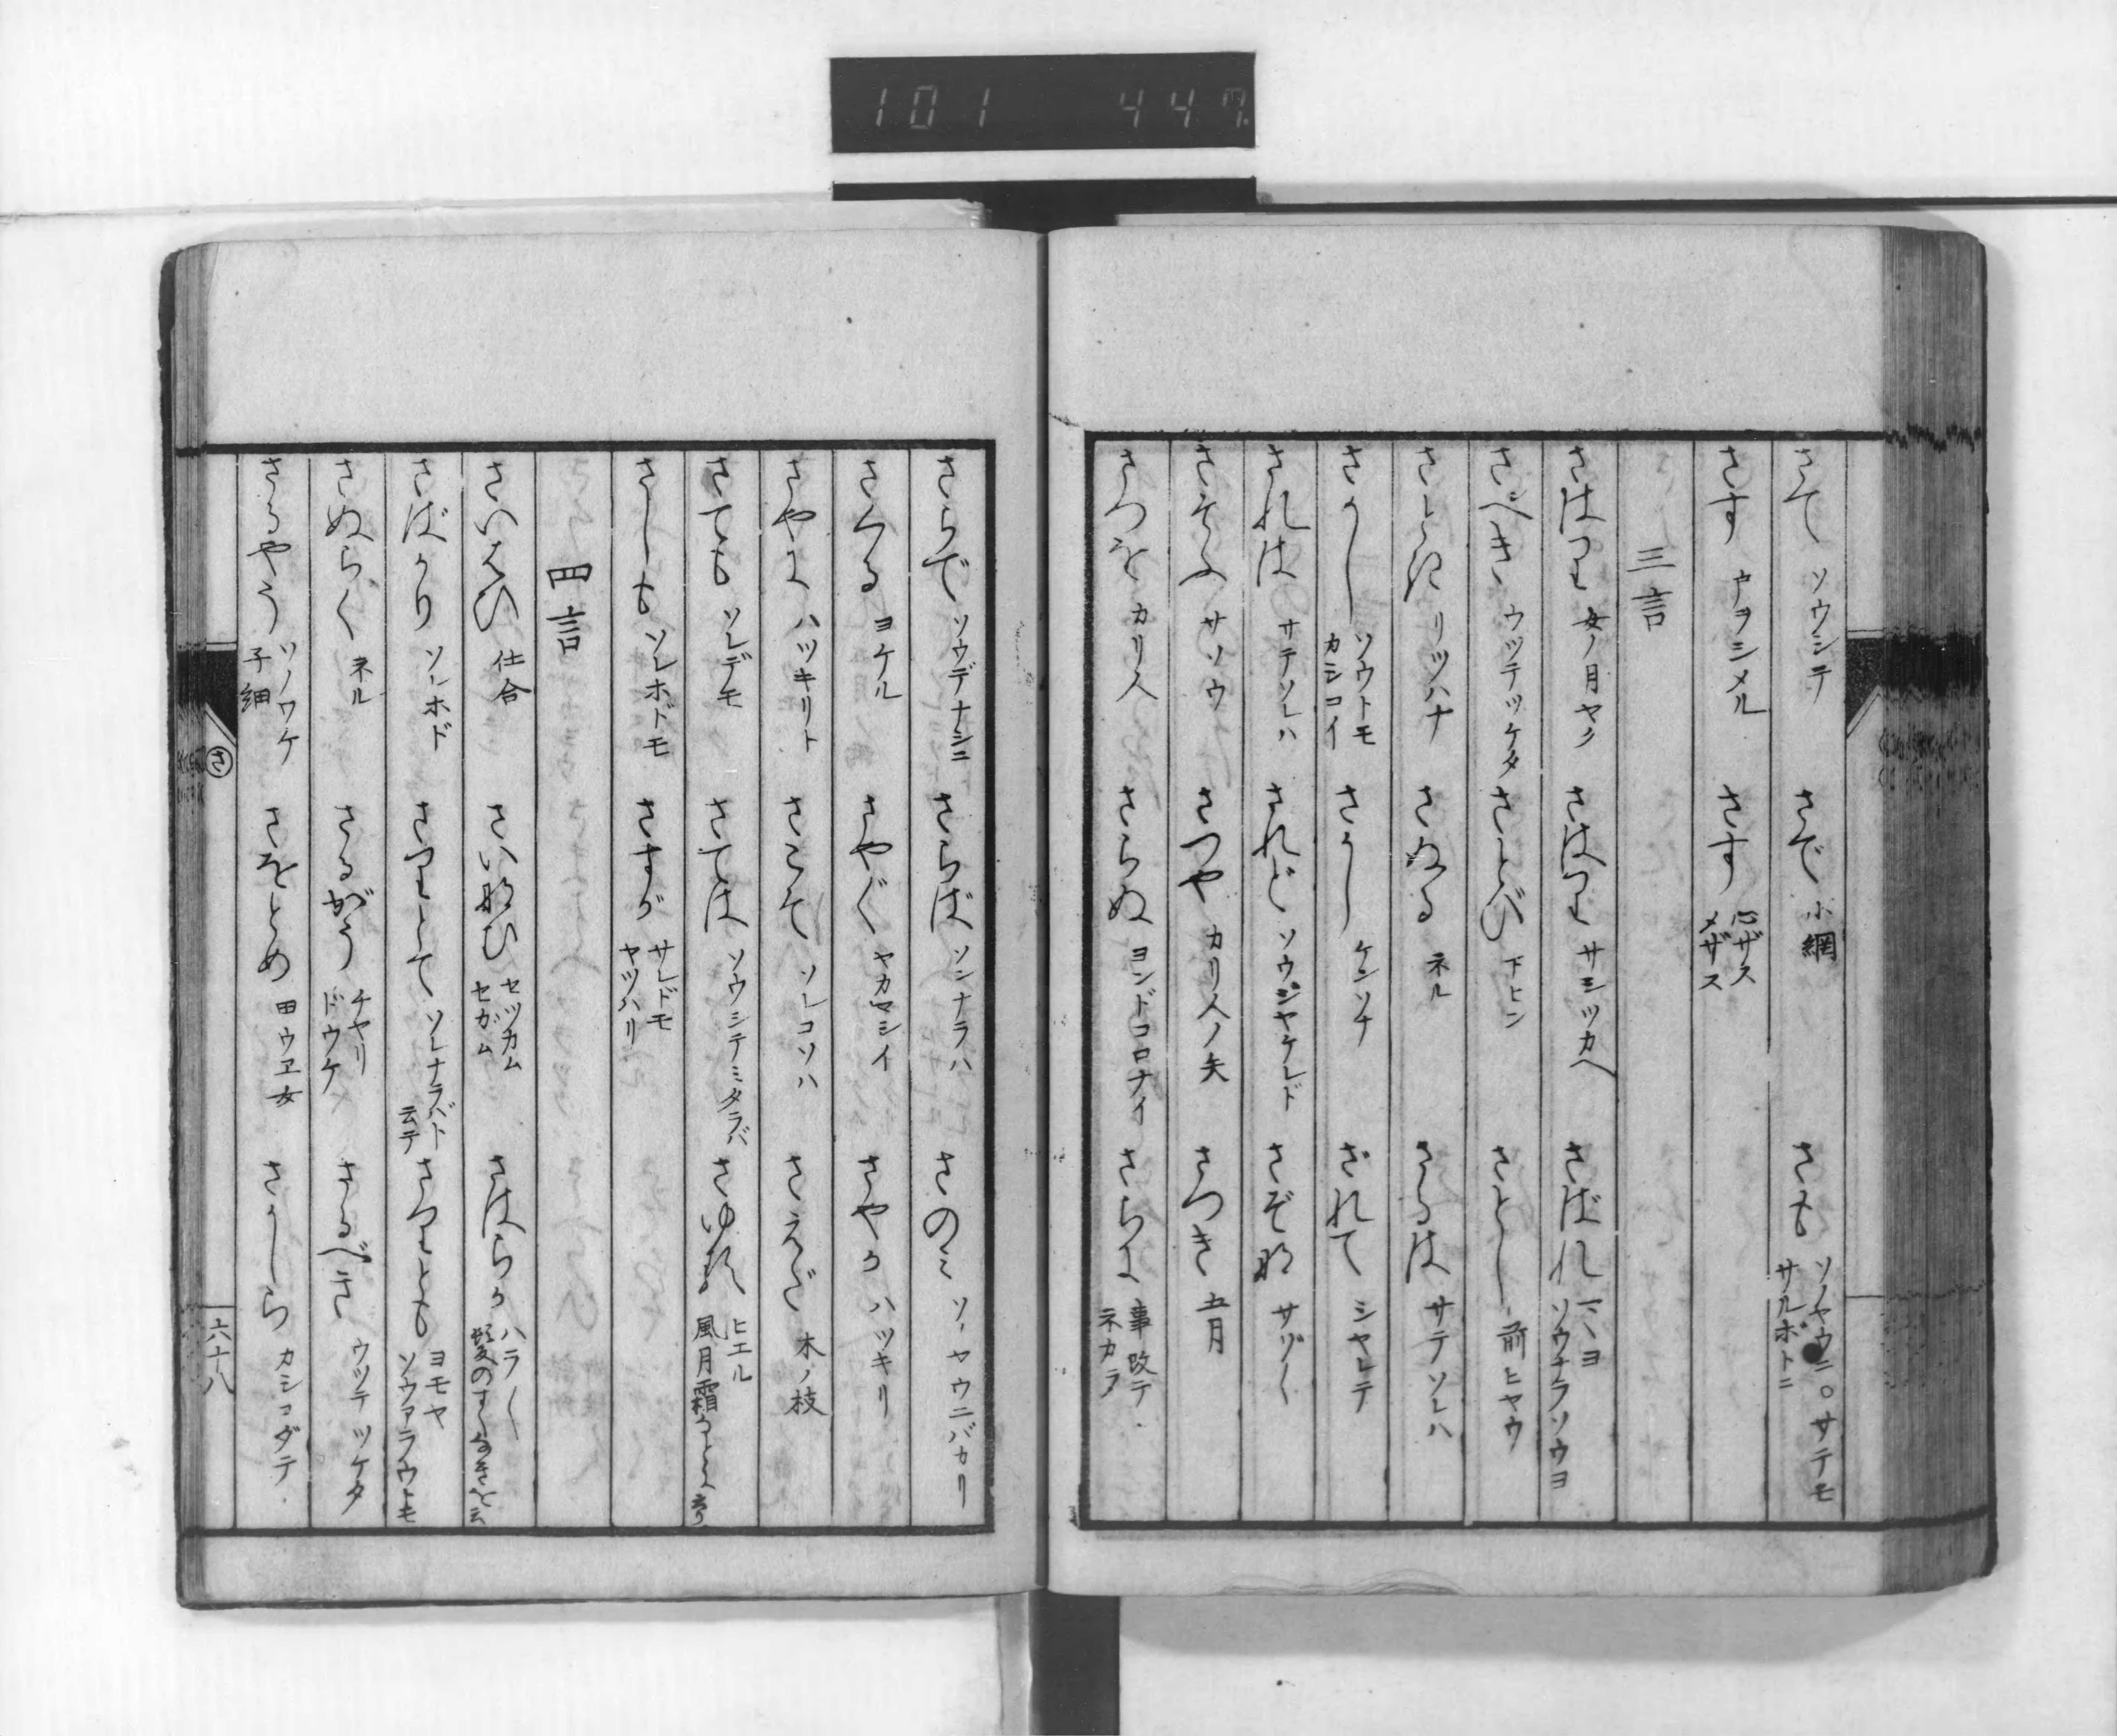 101 447
さて ソウシテ さで 小網 さも ソノヤウニ○サテモ サルホトニ
さす 戸ヲシメル さす 心ザス メザス
三言
さはり 女ノ月ヤク さはり サシツカヘ さばれ ソウナラソウヨ
さべき ウツテツケタ さとび 下ヒン さとし 前ヒヤウ
リツハナ さぬる ネル さるは サテソレハ
さかし ソウトモ カシコイ さかし ケンソナ されて シヤレテ
されは サテソレハ されど ソウジヤケレド さぞな サゾ〱
さそふ サソウ さつや カリ人ノ矢 さつき 五月
さつを カリ人 さらぬ ヨンドコロナイ さらに 事改テ ネカラ
さらで ソウデナシニ さらば ソンナラハ さのミ ソノヤウニバカリ
さくる ヨケル さやぐ ヤカマシイ さやか ハツキリ
さやに ハツキリト さこそ ソレコソハ さえだ 木ノ枝
さても ソレデモ さては ソウシテミタラバ さゆる ヒエル 風月霜
さしも ソレホドモ さすが サレドモ ヤツハリ
四言
さいはひ 仕合 さいなむ セツカム セガム さはらか ハラ〱
さばかり ソレホド さりとて ソレナラバト云テ さりとも ヨモヤ ソウアラウトモ
さぬらく ネル さるがう チヤリ ドウケ さるべき ウツテツケタ
さるやう ソノワケ 子細 さをとめ 田ウヱ女 さかしら カシコダテ
さ
六十八